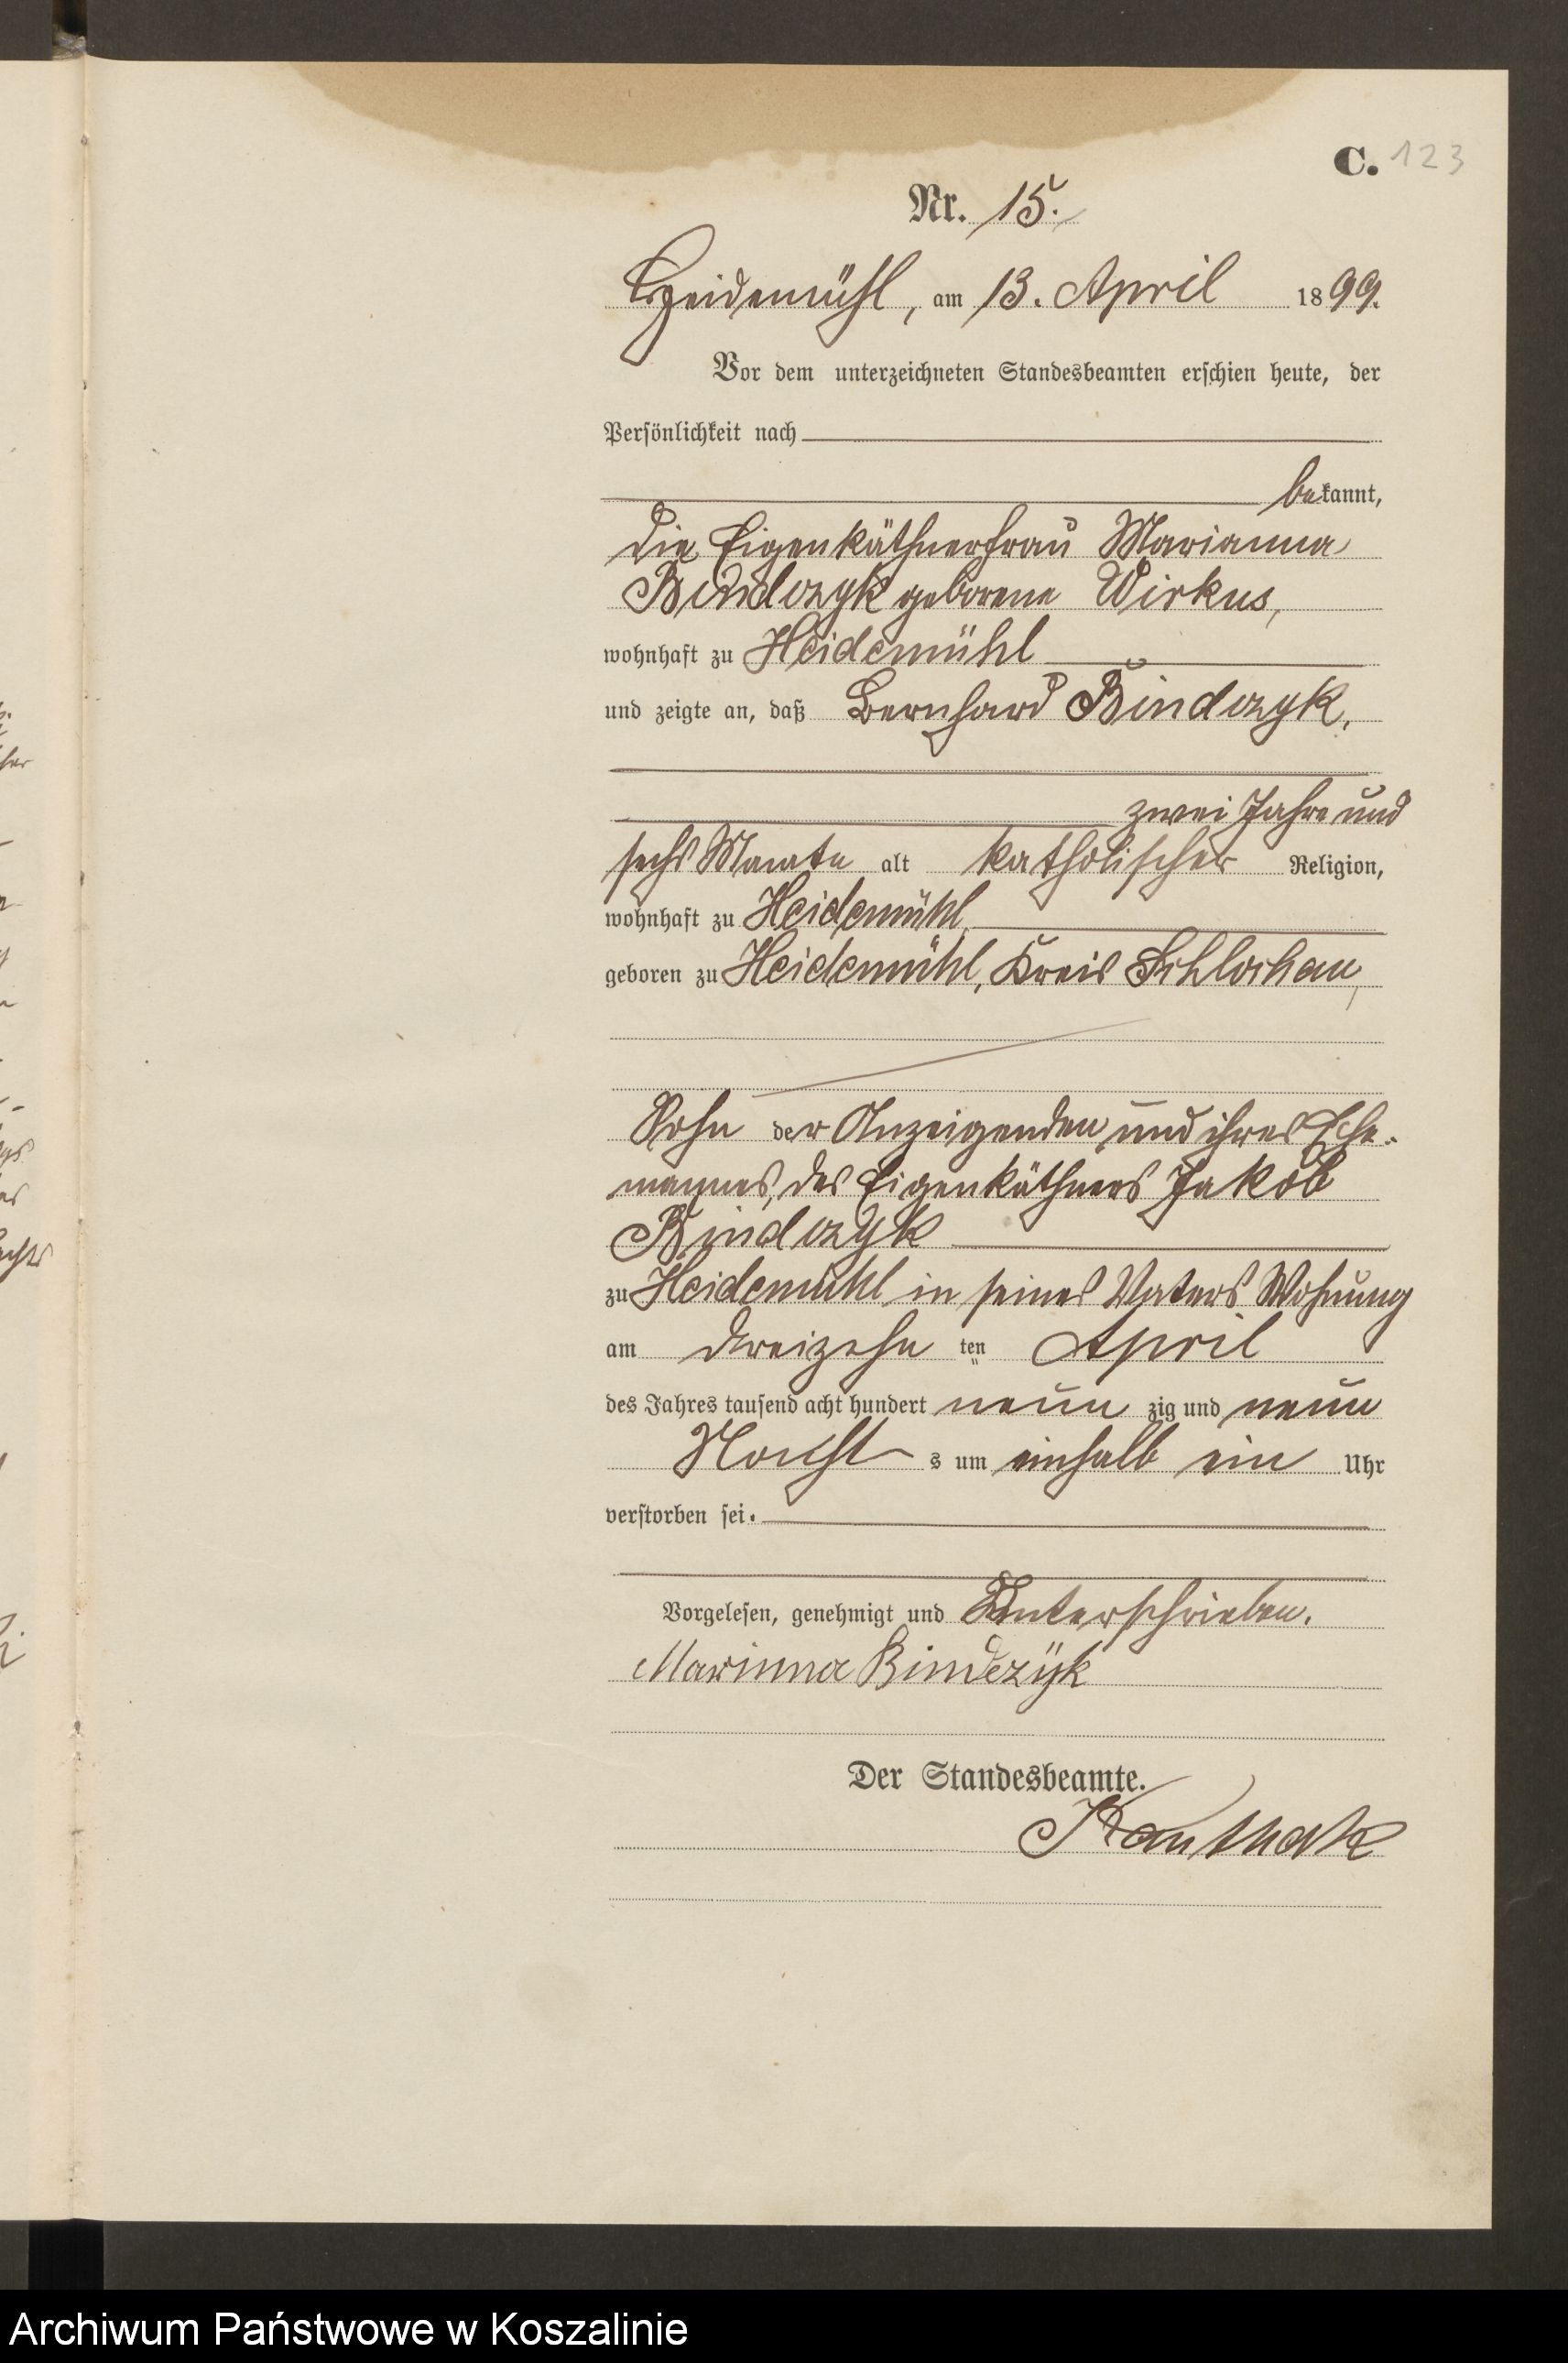 C. 123
Nr. 15.
Heidemühl, am 13. April 1899.
Vor dem unterzeichneten Standesbeamten erschien heute, der
Persönlichkeit nach
bekannt,
die Eigenkäthnerfrau Marianna
Bindczyk geborene Wirkus,
wohnhaft zu Heidemühl
und zeigte an, daß Bernhard Bindczyk,
zwei Jahre und
sechs Monate alt katholischer Religion,
wohnhaft zu Heidemühl,
geboren zu Heidemühl, Kreis Schlochau,
Sohn der Anzeigenden und ihres Ehe-
mannes, des Eigenkäthners Jakob
Bindczyk
zu Heidemühl in seines Vaters Wohnung
am dreizehn ten April
des Jahres tausend acht hundert neun zig und neun
Nacht s um einhalb ein Uhr
verstorben sei.
Vorgelesen, genehmigt und Unterschrieben.
Marinna Bindezÿk
Der Standesbeamte.
Archiwum Państwowe w Koszalinie